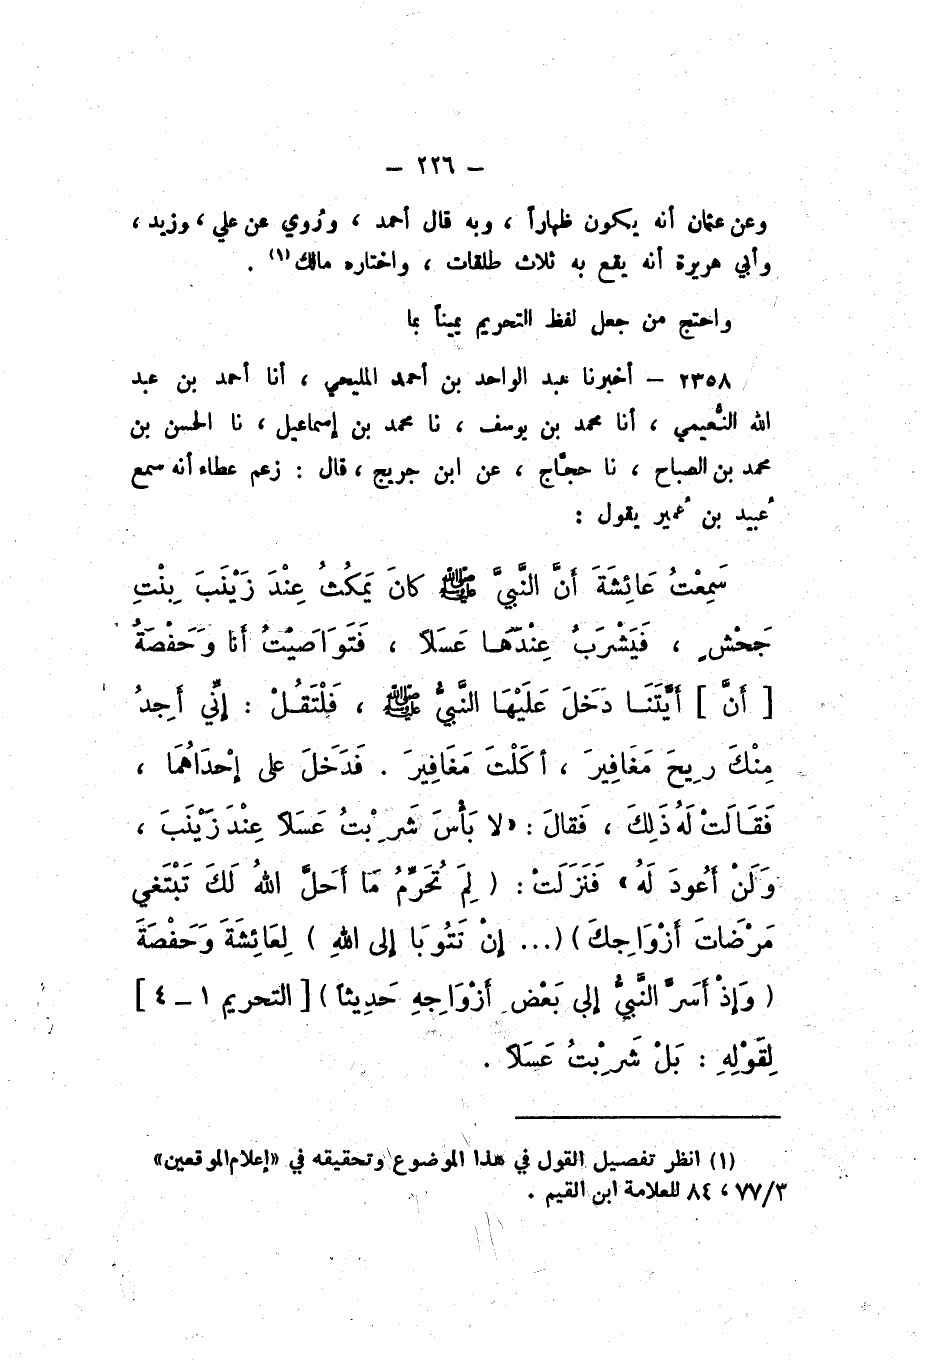 – ٢٢٦ –
وعن عثمان أنه يكون ظهاراً ، وبه قال أحمد ، ورُوي عن علي ، وزيد ،
وأبي هريرة أنه يقع به ثلاث طلقات ، واختاره مالك(١) .
واحتج من جعل لفظ التحريم يميناً بما
٢٣٥٨ – أخبرنا عبد الواحد بن أحمد المليحي ، أنا أحمد بن عبد
الله النُّعيمي ، أنا محمد بن يوسف ، نا محمد بن إسماعيل ، نا الحسن بن
محمد بن الصباح ، نا حجّاج ، عن ابن جريج ، قال : زعم عطاء أنه سمع
عُبيد بن عُمير يقول :
سَمِعْتُ عَائِشَةَ أَنَّ النَّبِيَّ ﷺ كانَ يَمكُثُ عِنْدَ زَيْنَبَ بِنْتِ
جَحْشٍ ، فَيَشْرَبُ عِنْدَهَا عَسَلاً ، فَتَوَاصَيْتُ أَنا وَحَفْصَةُ
[ أَنَّ ] أَيَّتَنَا دَخَلَ عَلَيْهَا النَّبِيُّ ﷺ ، فَلْتَقُلْ : إِنِّي أَجِدُ
مِنْكَ رِيحَ مَغَافِيرَ ، أكَلْتَ مَغَافِيرَ . فَدَخَلَ على إِحْدَاهُمَا ،
فَقَالَتْ لَهُ ذَلِكَ ، فَقالَ : «لا بَأْسَ شَرِبْتُ عَسَلاً عِنْدَ زَيْنَبَ ،
وَلَنْ أَعُودَ لَهُ» فَنَزَلَتْ : ( لِمَ تُحَرِّمُ مَا أَحَلَّ اللهُ لَكَ تَبْتَغي
مَرْضَاتَ أَزْوَاجِكَ ) (... إِنْ تَتُوبَا إلى اللهِ ) لِعَائِشَةَ وَحَفْصَةَ
( وَإِذْ أَسَرَّ النَّبِيُّ إلى بَعْضِ أَزْوَاجِهِ حَدِيثاً ) [ التحريم ١ – ٤ ]
لِقَوْلِهِ : بَلْ شَرِبْتُ عَسَلاً .
(١) انظر تفصيل القول في هذا الموضوع وتحقيقه في «إعلام الموقعين»
٣/٧٧ ، ٨٤ للعلامة ابن القيم .